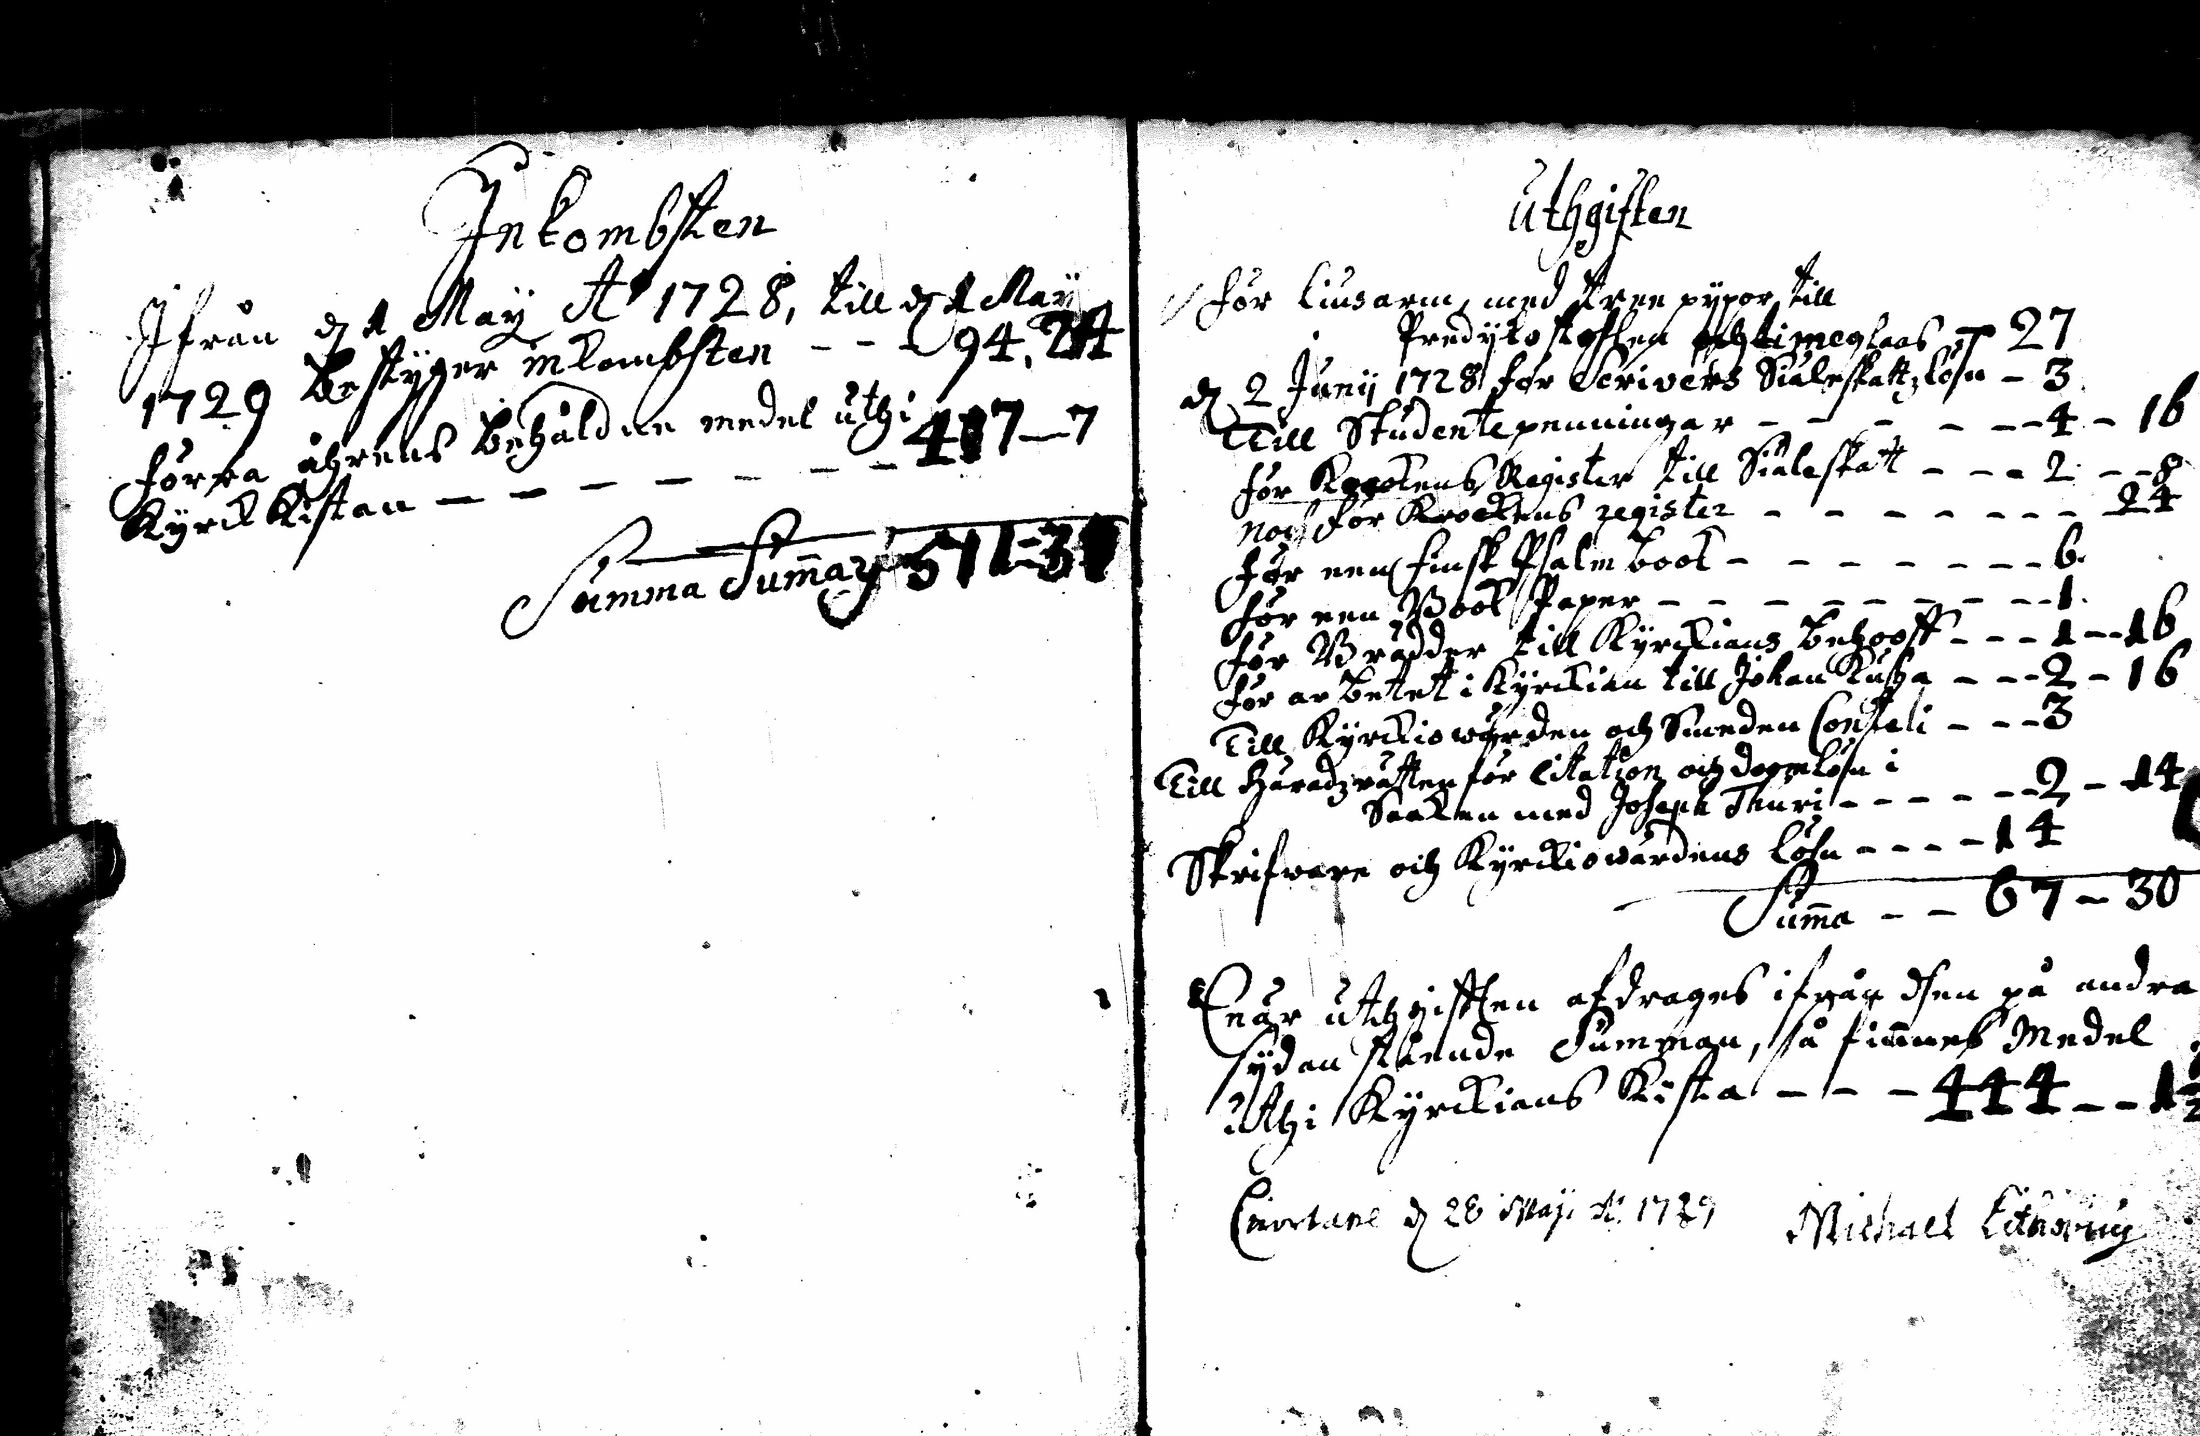 Inkombsten
Ifrån d 1 May Ao 1728, till d 1 May
1729 bestyger inkombsten - - - 94. 24
Förra åhrens behåldne medel uthi
Kyrck Kistan - - - - - - - - 417 - 7
Summa Summar 511 - 31
Uthgiften
För liusarm, med tree pypor, till
Predykostohlen och timeglaas - 27
d 2 Junij 1728 för Scrivers Siäleskattz lösn - 3
Till Studentepenningar - - - - - - 4 - 16
För Krokens Register till Siäleskatt - - - 2 - - 8
Noch för Krockens register - - - - - - - - 24
För een Finsk Psalmbook - - - - - - - 6.
För een Book Paper - - - - - - - - - 1.
För Brädder till Kyrckians behooff - - - 1 - - 16
För arbetet i Kyrckian till Johan - - - 2 - 16
Till Kyrckiowärden och Smeden - - - 3
Till Häradzrätten för Citation och domlösn i
Saaken med Joseph Thuri - - - - - - 2 - 14
Skrifware och Kyrckiowärdens löhn - - - - 14
Summa - - 67 - 30
Enär uthgiften afdrages ifrån den på andra
sydan stående Summan, så finnes Medel
uthi Kyrckians Kista - - - 444 - - 1
d 28 Maji A: 1729 Michael